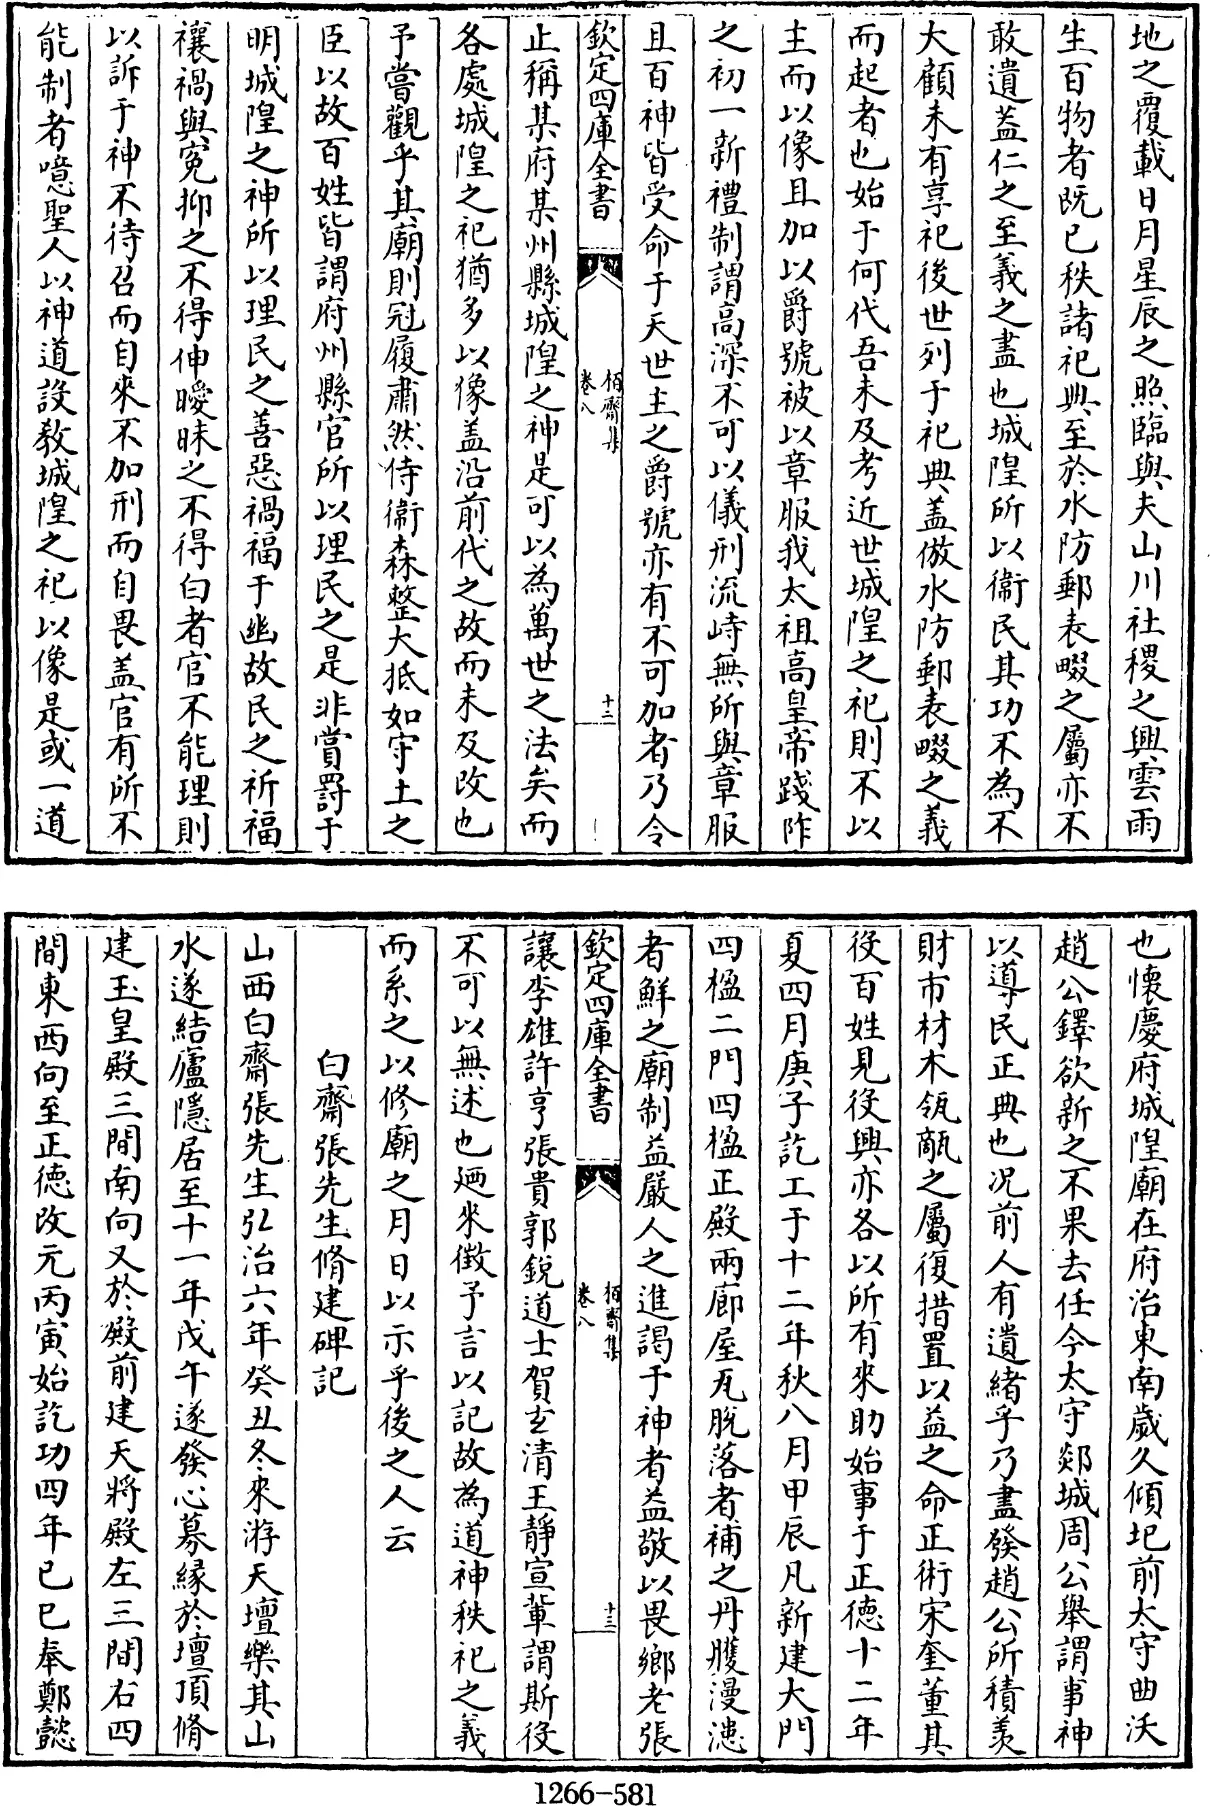 地之覆載日月星辰之照臨與夫山川社稷之興雲雨
生百物者既已秩諸祀典至於水防郵表畷之屬亦不
敢遺盖仁之至義之盡也城隍所以衞民其功不為不
大顧未有享祀後世列于祀典盖倣水防郵表畷之義
而起者也始于何代吾未及考近世城隍之祀則不以
主而以像且加以爵號被以章服我太祖高皇帝踐阼
之初一新禮制謂高深不可以儀刑流峙無所與章服
且百神皆受命于天世主之爵號亦有不可加者乃令
欽定四庫全書
栢齋集
卷八
十二
止稱某府某州縣城隍之神是可以為萬世之法矣而
各處城隍之祀猶多以像盖沿前代之故而未及改也
予嘗觀乎其廟則冠履肅然侍衞森整大抵如守土之
臣以故百姓皆謂府州縣官所以理民之是非賞罸于
明城隍之神所以理民之善惡禍福于幽故民之祈福
禳禍與寃抑之不得伸曖昧之不得白者官不能理則
以訴于神不待召而自來不加刑而自畏盖官有所不
能制者噫聖人以神道設教城隍之祀以像是或一道
也懷慶府城隍廟在府治東南歲久傾圯前太守曲沃
趙公鐸欲新之不果去任今太守郯城周公舉謂事神
以導民正典也况前人有遺緒乎乃盡發趙公所積羡
財市材木瓴甋之屬復措置以益之命正術宋奎董其
役百姓見役興亦各以所有來助始事于正德十二年
夏四月庚子訖工于十二年秋八月甲辰凡新建大門
四楹二門四楹正殿兩廊屋瓦脫落者補之丹雘漫漶
者鮮之廟制益嚴人之進謁于神者益敬以畏鄉老張
欽定四庫全書
栢齋集
卷八
十三
讓李雄許亨張貴郭銳道士賀玄清王靜宣輩謂斯役
不可以無述也廼來徵予言以記故為道神秩祀之義
而系之以修廟之月日以示乎後之人云
白齋張先生脩建碑記
山西白齋張先生弘治六年癸丑冬來游天壇樂其山
水遂結廬隱居至十一年戊午遂發心募緣於壇頂脩
建玉皇殿三間南向又於殿前建天將殿左三間右四
間東西向至正德改元丙寅始訖功四年己巳奉鄭懿
1266-581